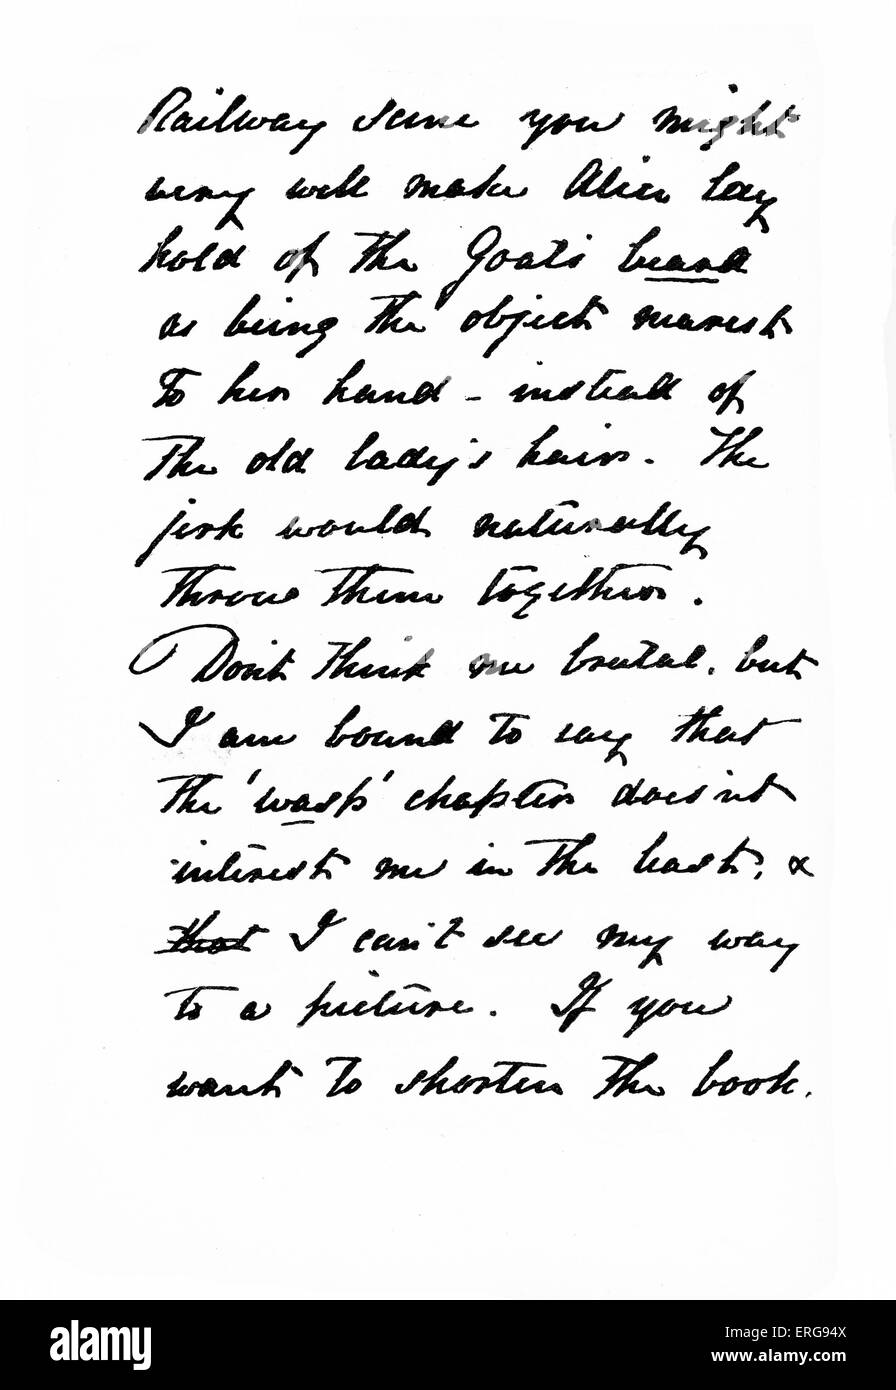 Railway scene you might
very well make Alice lay
hold of the Goat's beard
as being the object nearest
to her hand - instead of
the old lady's hair. The
jerk would naturally
throw them together.
Don't think me brutal, but
I am bound to say that
the 'wasp' chapter doesn't
interest me in the least, &
that I can't see my way
to a picture. If you
want to shorten the book,
alamy
a
alamy
Image ID: ERG94X
www.alamy.com